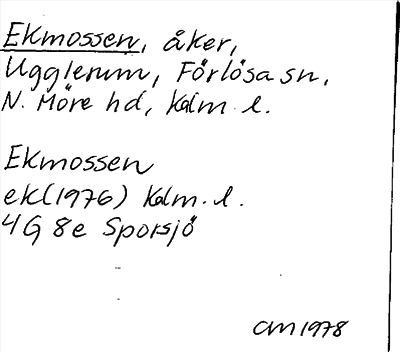 Ekmossen, åker,
Ugglerum, Förlösa sn,
N. Möre hd, Kalm. l.
Ekmossen
ek (1976) Kalm. l.
4G 8e Sporsjö
CM 1978